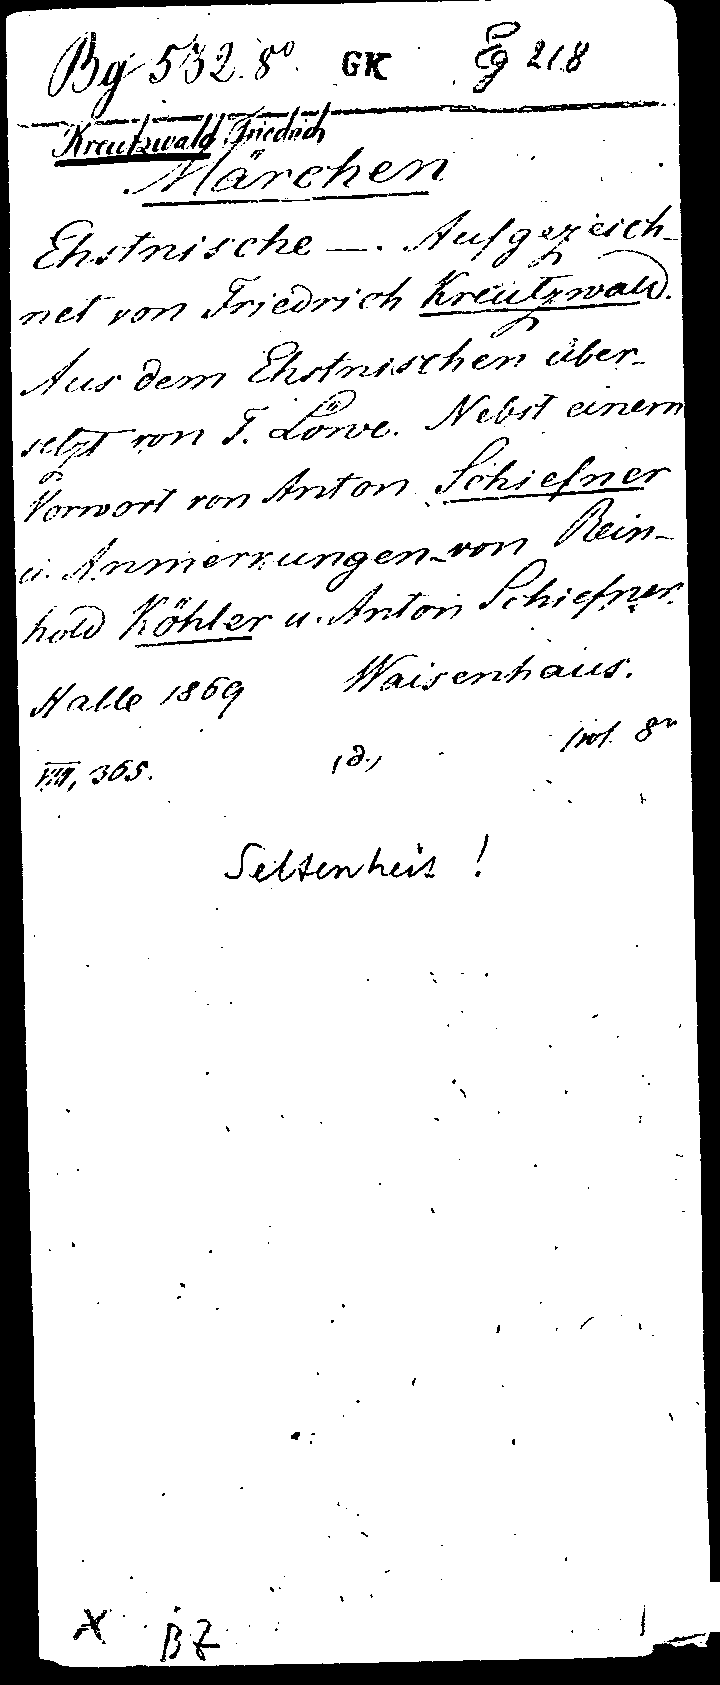 Bg 532.8° GK Eg 218
Kreutzwald, Friedrich
Märchen
Ehstnische —. Aufgezeich-
net von Friedrich Kreutzwald.
Aus dem Ehstnischen über-
setzt von F. Löwe. Nebst einem
Vorwort von Anton Schiefner
u. Anmerkungen von Rein-
hold Köhler u. Anton Schiefner.
Halle 1869 Waisenhaus.
VIII, 365. 8°
Seltenheit!
X BZ